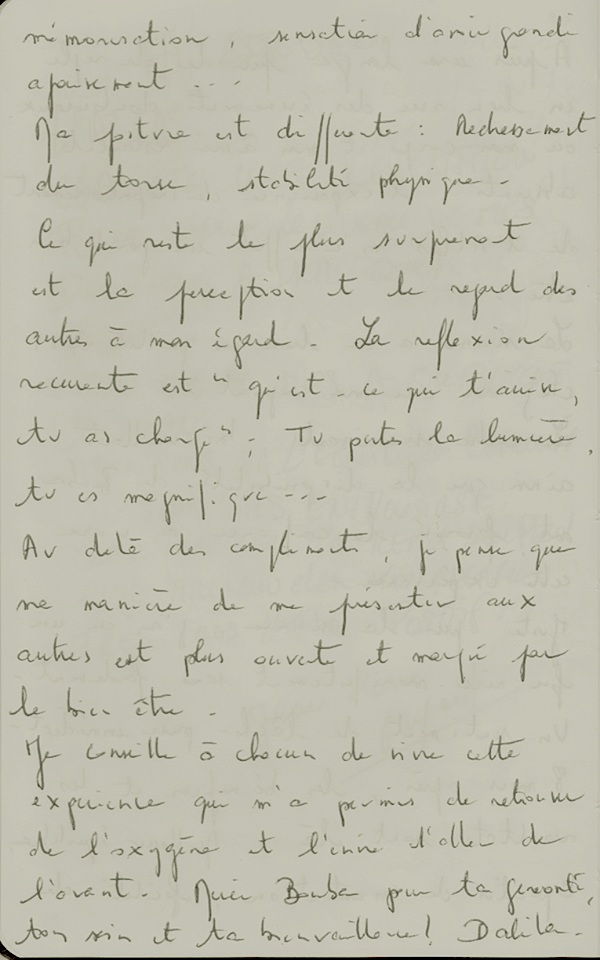 mémorisation, sensation d'avoir grandi
apaisement ...
Ma posture est différente : Redressement
du torse, stabilité physique -
Ce qui reste le plus surprenant
est la perception et le regard des
autres à mon égard - La reflexion
recurente est " qu'est-ce qui t'arrive,
tu as changé" ; Tu portes la lumière,
tu es magnifique ---
Au delà des compliments, je pense que
ma manière de me présenter aux
autres est plus ouverte et marqué par
le bien être -
Je conseille à chacun de vivre cette
expérience qui m'a permis de retrouver
de l'oxygène et l'envie d'aller de
l'avant - Merci Bouba pour ta générosité,
ton soin et ta bienveillance! Dalila -